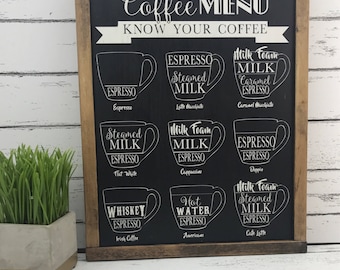 Coffee MENU
KNOW YOUR COFFEE
ESPRESSO
Espresso
ESPRESSO
Steamed
MILK
Latte Macchiato
Milk Foam
MILK
Caramel
ESPRESSO
Caramel Macchiato
Steamed
MILK
ESPRESSO
Flat White
Milk Foam
MILK
ESPRESSO
Cappuccino
ESPRESSO
ESPRESSO
Doppio
WHISKEY
ESPRESSO
Irish Coffee
Hot
WATER
ESPRESSO
Americano
Milk Foam
Steamed
MILK
ESPRESSO
Cafe Latte